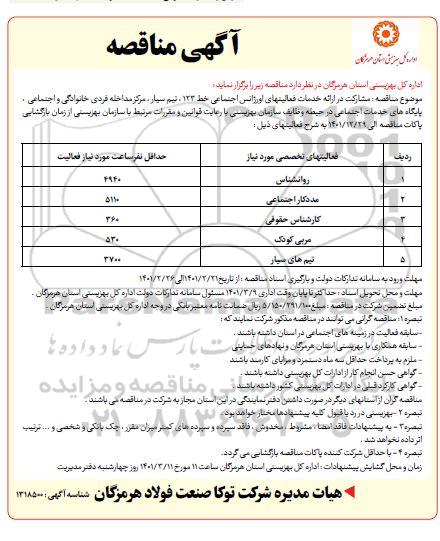 آگهی مناقصه
اداره کل بهزیستی استان هرمزگان
اداره کل بهزیستی استان هرمزگان در نظر دارد مناقصه زیر را برگزار نماید :
موضوع مناقصه : مشارکت در ارائه خدمات فعالیتهای اورژانس اجتماعی خط ۱۲۳ ، تیم سیار ، مرکز مداخله فردی خانوادگی و اجتماعی ،
پایگاه های خدمات اجتماعی در حیطه وظایف سازمان بهزیستی با رعایت قوانین و مقررات مرتبط با سازمان بهزیستی از زمان بازگشایی
پاکات مناقصه الی ۱۴۰۱/۱۲/۲۹ به شرح فعالیتهای ذیل :
ردیف فعالیتهای تخصصی مورد نیاز حداقل نفرساعت مورد نیاز فعالیت
۱ روانشناس ۴۹۴۰
۲ مددکار اجتماعی ۵۱۱۰
۳ کارشناس حقوقی ۳۶۰
۴ مربی کودک ۵۳۰
۵ تیم های سیار ۳۷۰۰
مهلت ورود به سامانه تدارکات دولت و بارگیری اسناد مناقصه : از تاریخ ۱۴۰۱/۲/۲۱ الی ۱۴۰۱/۲/۲۶
مهلت و محل تحویل اسناد : حداکثر تا پایان وقت اداری ۱۴۰۱/۳/۹ مسئول سامانه تدارکات دولت اداره کل بهزیستی استان هرمزگان .
مبلغ تضمین شرکت در مناقصه : مبلغ ۵/۱۵۰/۲۹۱/۱۰۰ ریال ضمانت نامه معتبر بانکی در وجه اداره کل بهزیستی استان هرمزگان .
تبصره۱: مناقصه گرانی می توانند در مناقصه مذکور شرکت نمایند که :
-سابقه فعالیت در زمینه های اجتماعی در استان داشته باشند .
- سابقه همکاری با بهزیستی استان هرمزگان و نهادهای حمایتی
- ملزم به پرداخت حداقل سه ماه دستمزد و مزایای کارمند باشند
- گواهی حسن انجام کار از ادارات کل بهزیستی داشته باشند .
- گواهی کارکرد قبلی در ادارات کل بهزیستی کشور داشته باشند .
مناقصه گران از استانهای دیگر در صورت داشتن دفتر نمایندگی در این استان مجاز به شرکت در مناقصه می باشند .
تبصره ۲ -بهزیستی در رد یا قبول کلیه پیشنهادها مختار خواهد بود .
تبصره۳ - به پیشنهادات فاقد امضا ، مشروط ، مخدوش ، فاقد سپرده و سپرده های کمتر میزان مقرر ، چک بانکی و شخصی و ... ترتیب
اثر داده نخواهد شد .
تبصره ۴ - با حداقل شرکت کننده پاکات مناقصه بازگشایی می گردد.
زمان و محل گشایش پیشنهادات : اداره کل بهزیستی استان هرمزگان ساعت ۱۱ مورخ ۱۴۰۱/۳/۱۱ روز چهارشنبه دفتر مدیریت
هیات مدیره شرکت توکا صنعت فولاد هرمزگان شناسه آگهی : ۱۳۱۸۵۰۰